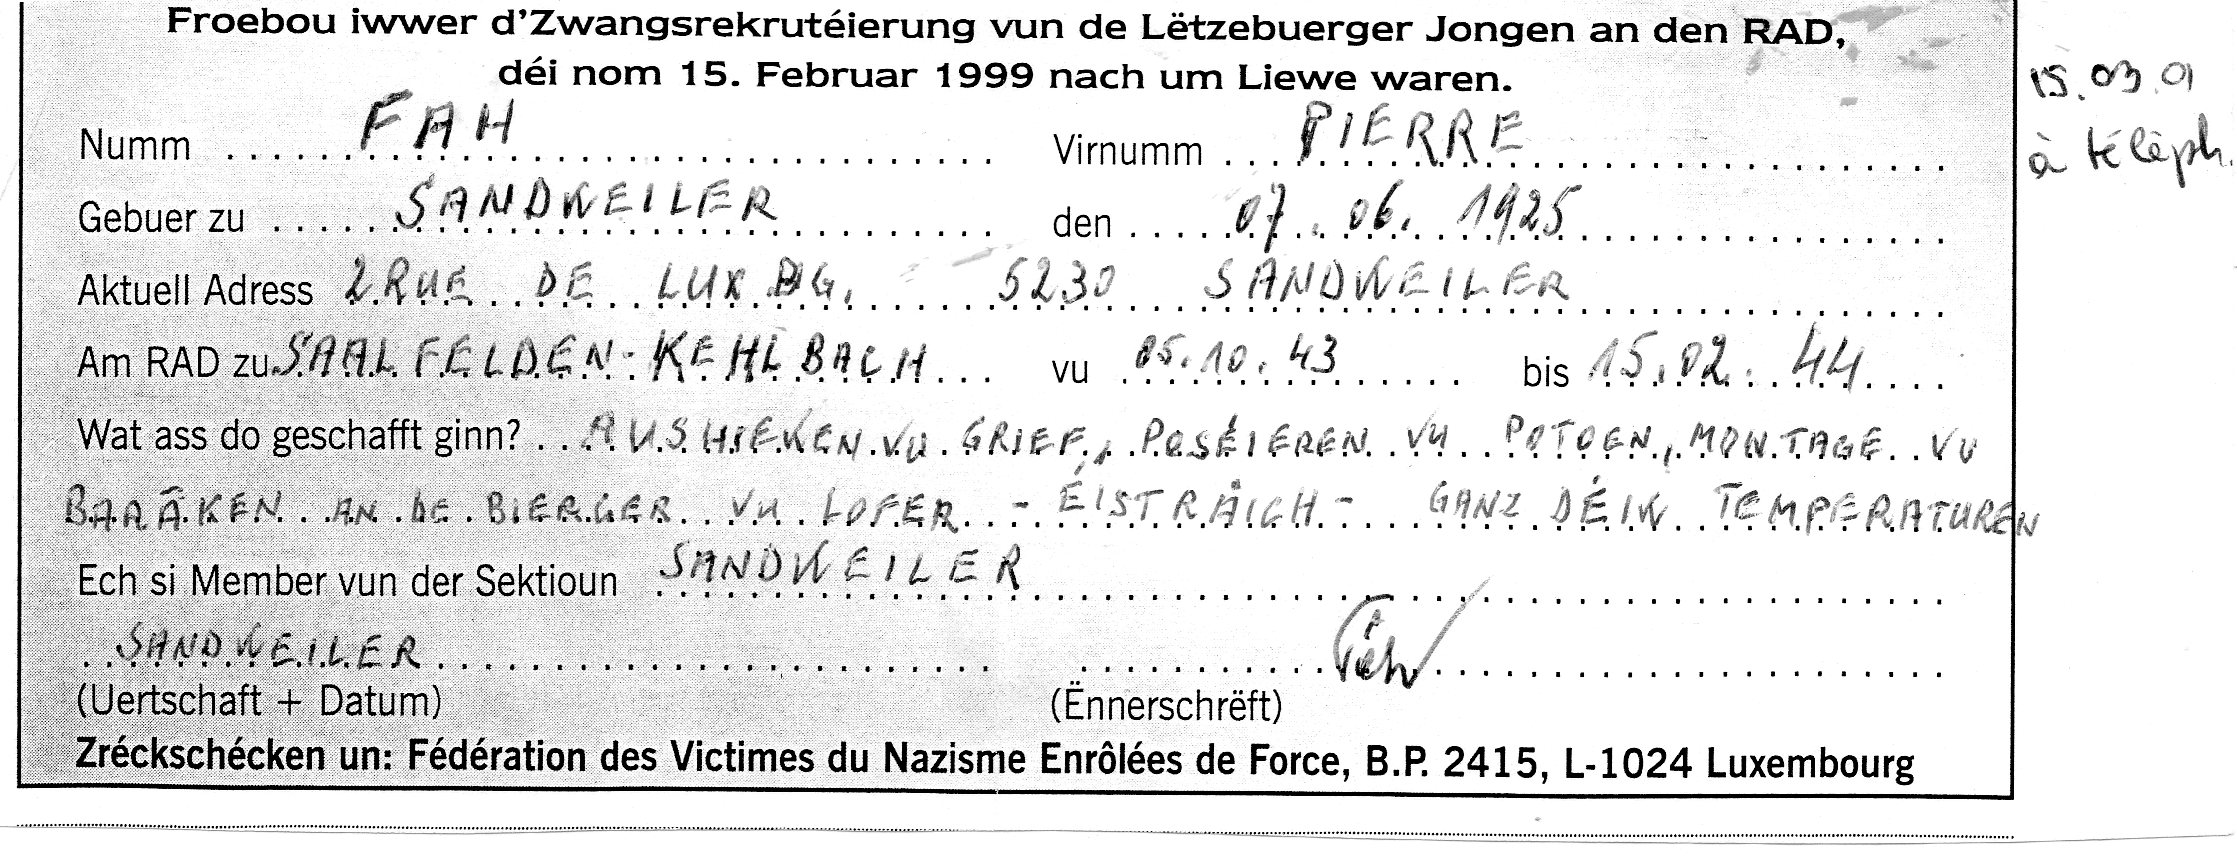 Froebou iwwer d'Zwangsrekrutéierung vun de Lëtzebuerger Jongen an den RAD,
déi nom 15. Februar 1999 nach um Liewe waren.
15.03.01
à téléph.
Numm FAH Virnumm PIERRE
Gebuer zu SANDWEILER den 07.06.1925
Aktuell Adress 2 RUE DE LUXBG. 5230 SANDWEILER
Am RAD zu SAALFELDEN-KEHLBACH vu 05.10.43 bis 15.02.44
Wat ass do geschafft ginn? AUSHIEKEN VU GRIEF, POSÉIEREN VU POTOEN, MONTAGE VU
BARÄKEN AN DE BIERGER VU LOFER - ÉISTRÄICH - GANZ DÉIW TEMPERATUREN
Ech si Member vun der Sektioun SANDWEILER
SANDWEILER
(Uertschaft + Datum) (Ënnerschrëft)
Zréckschécken un: Fédération des Victimes du Nazisme Enrôlées de Force, B.P. 2415, L-1024 Luxembourg